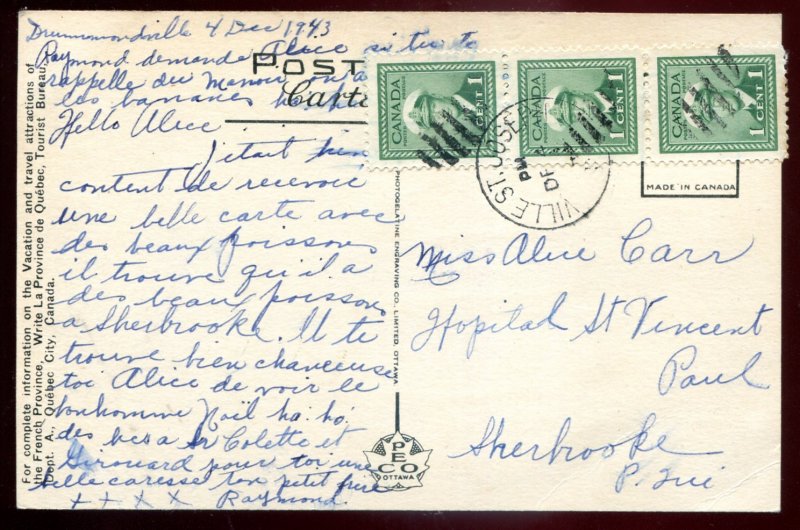 Drummondville 4 Dec 1943
Raymond demande Alice si tu te
rappelle du Manoir on a
les bananes
Hello Alice
J'était bien
content de recevoir
une belle carte avec
des beaux poissons
il trouve qu'il a
des beau poissons
a Sherbrooke. Il te
trouve bien chanceuse
toi Alice de voir le
bonhomme Noël ha. ho.
des bec a Colette et
Girouard pour toi une
belle caresse ton petit frère
x x x x Raymond.
POST
Carte
CANADA 1 CENT
CANADA 1 CENT
CANADA 1 CENT
VILLE ST. JOSEPH
PM
DE
MADE IN CANADA
Miss Alice Carr
Hopital St Vincent
Paul
Sherbrooke
P. Que
For complete information on the Vacation and travel attractions of
the French Province, Write La Province de Québec, Tourist Bureau,
Dept. A., Québec City, Canada.
PHOTOGELATINE ENGRAVING CO. LIMITED, OTTAWA
PECO
OTTAWA